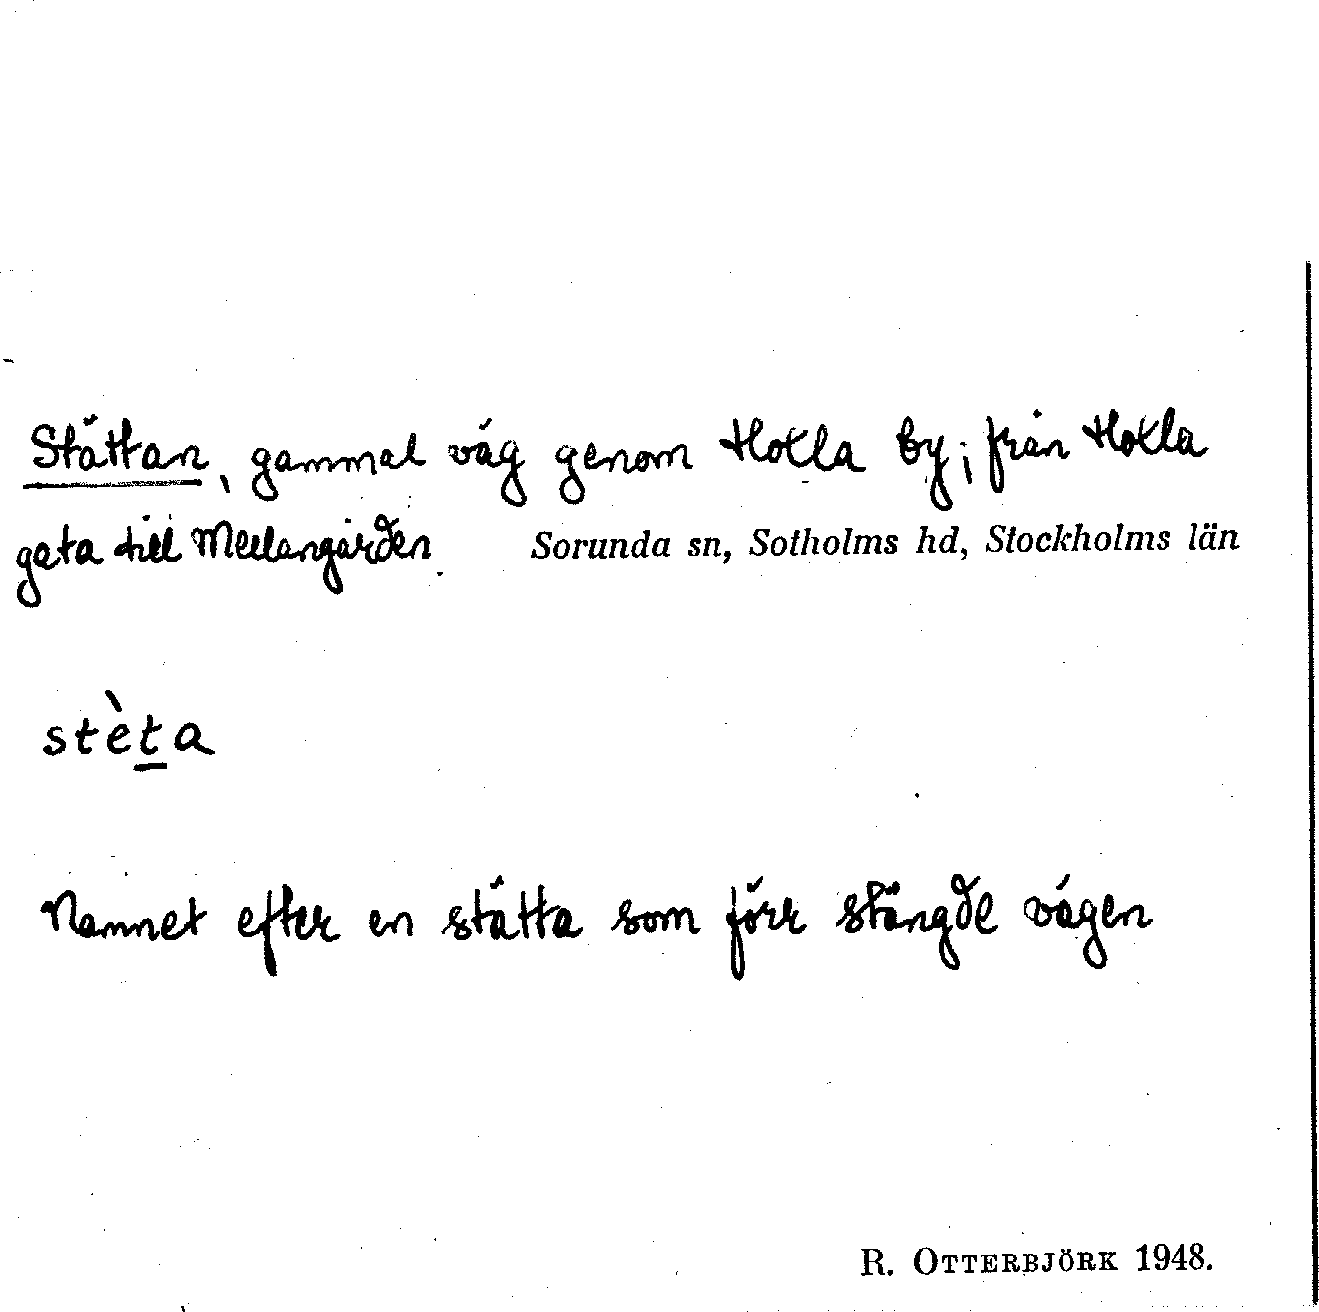 Stättan, gammal väg genom Hoxla by; från Hoxla
gata till Mellangården Sorunda sn, Sotholms hd, Stockholms län
stèta
Namnet efter en stätta som förr stängde vägen
R. OTTERBJÖRK 1948.